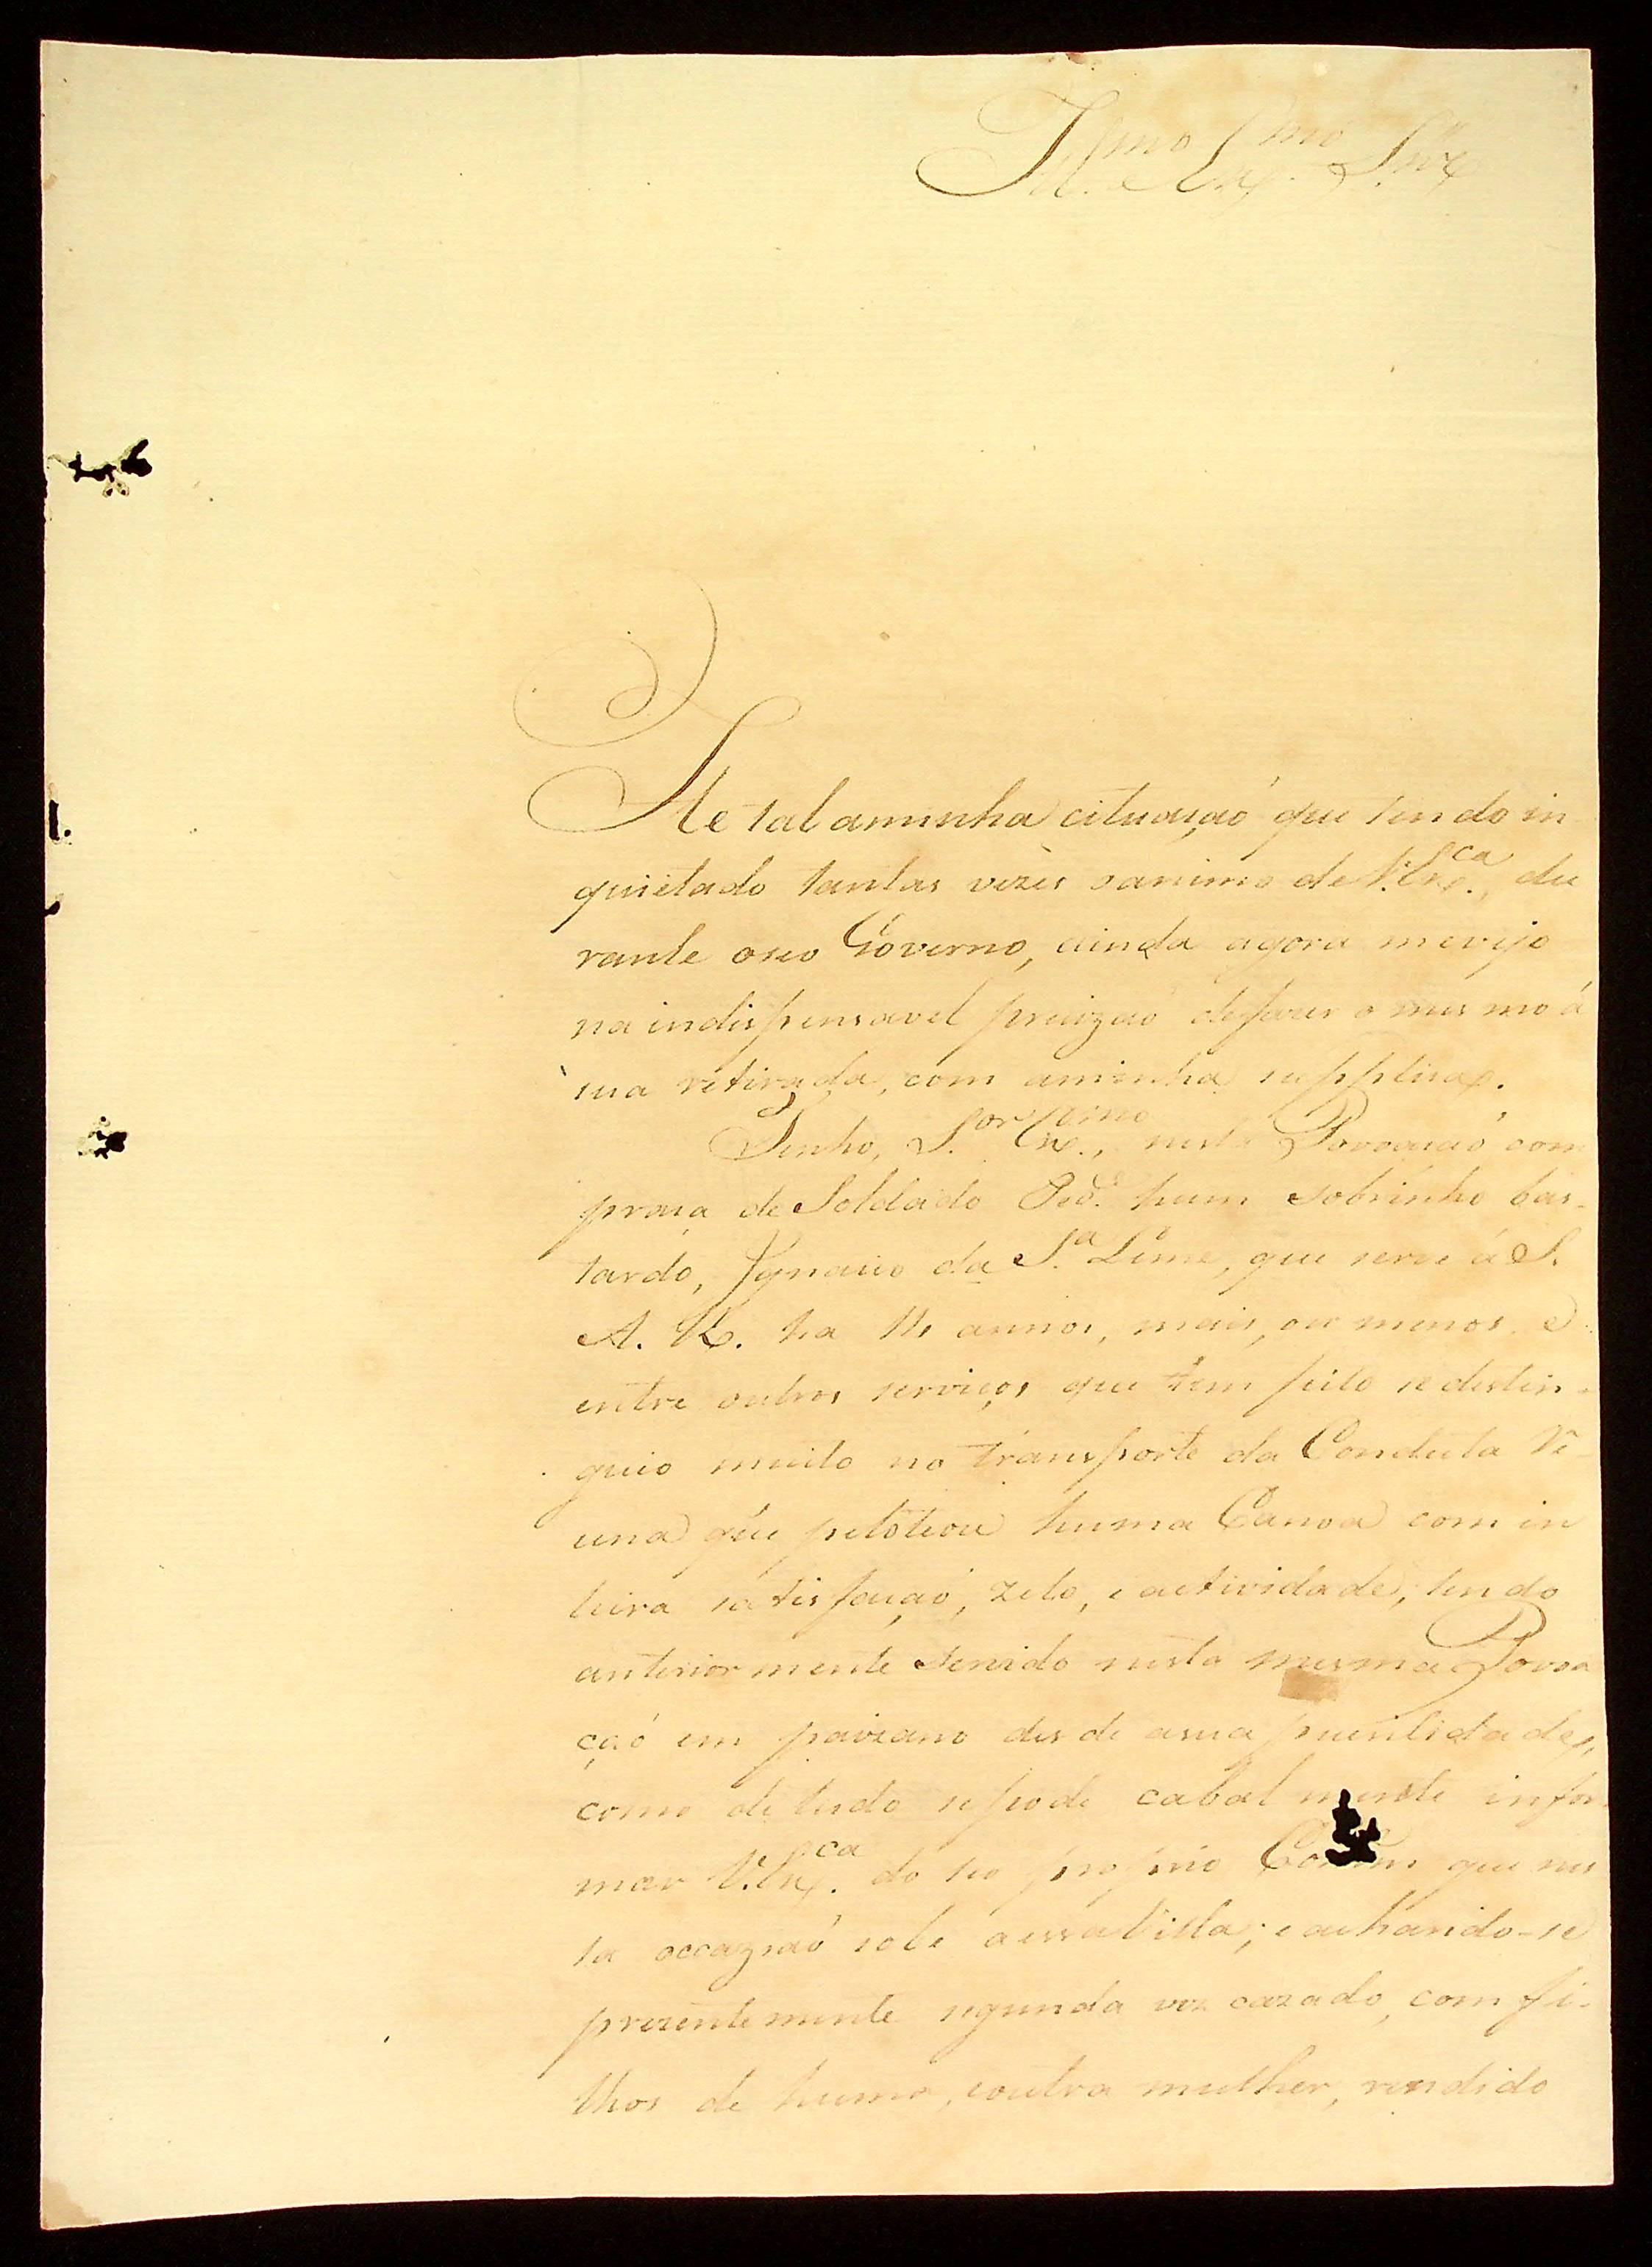 Ill.mo e Ex.mo Snr.
He tal aminha cituaçaõ que tendo in
quietado tantas vezes oanimo de V. Ex.ca, du
rante oseo Governo, ainda agora mevejo
na indispensavel precizaõ defazer o mesmo á
sua retirada, com aminha supplica.
Tenho, S.or Ex.mo, nesta Povoaçaõ com
praça de Soldado Ped.e hum sobrinho bas-
tardo, Ignacio da S.a Leme, que serve á S.
A. R. ha annos, mais, ou menos, e
entre outros serviços que tem feito sedestin-
guio muito no transporte da Conducta Vi-
una que piloteou huma Canoa com in
teira satisfaçaõ, zelo, e actividade, tendo
anteriormente servido nesta mesma Povoa
çaõ em paizano des de asua puerilidade,
como detudo sepode cabal mente infor-
mar V. Ex.ca do seo proprio que nes
ta occaziaõ sobe aessa Villa; e achando-se
prezentemente segunda vez cazado, com fi-
lhos de huma, eoutra mulher, rendido